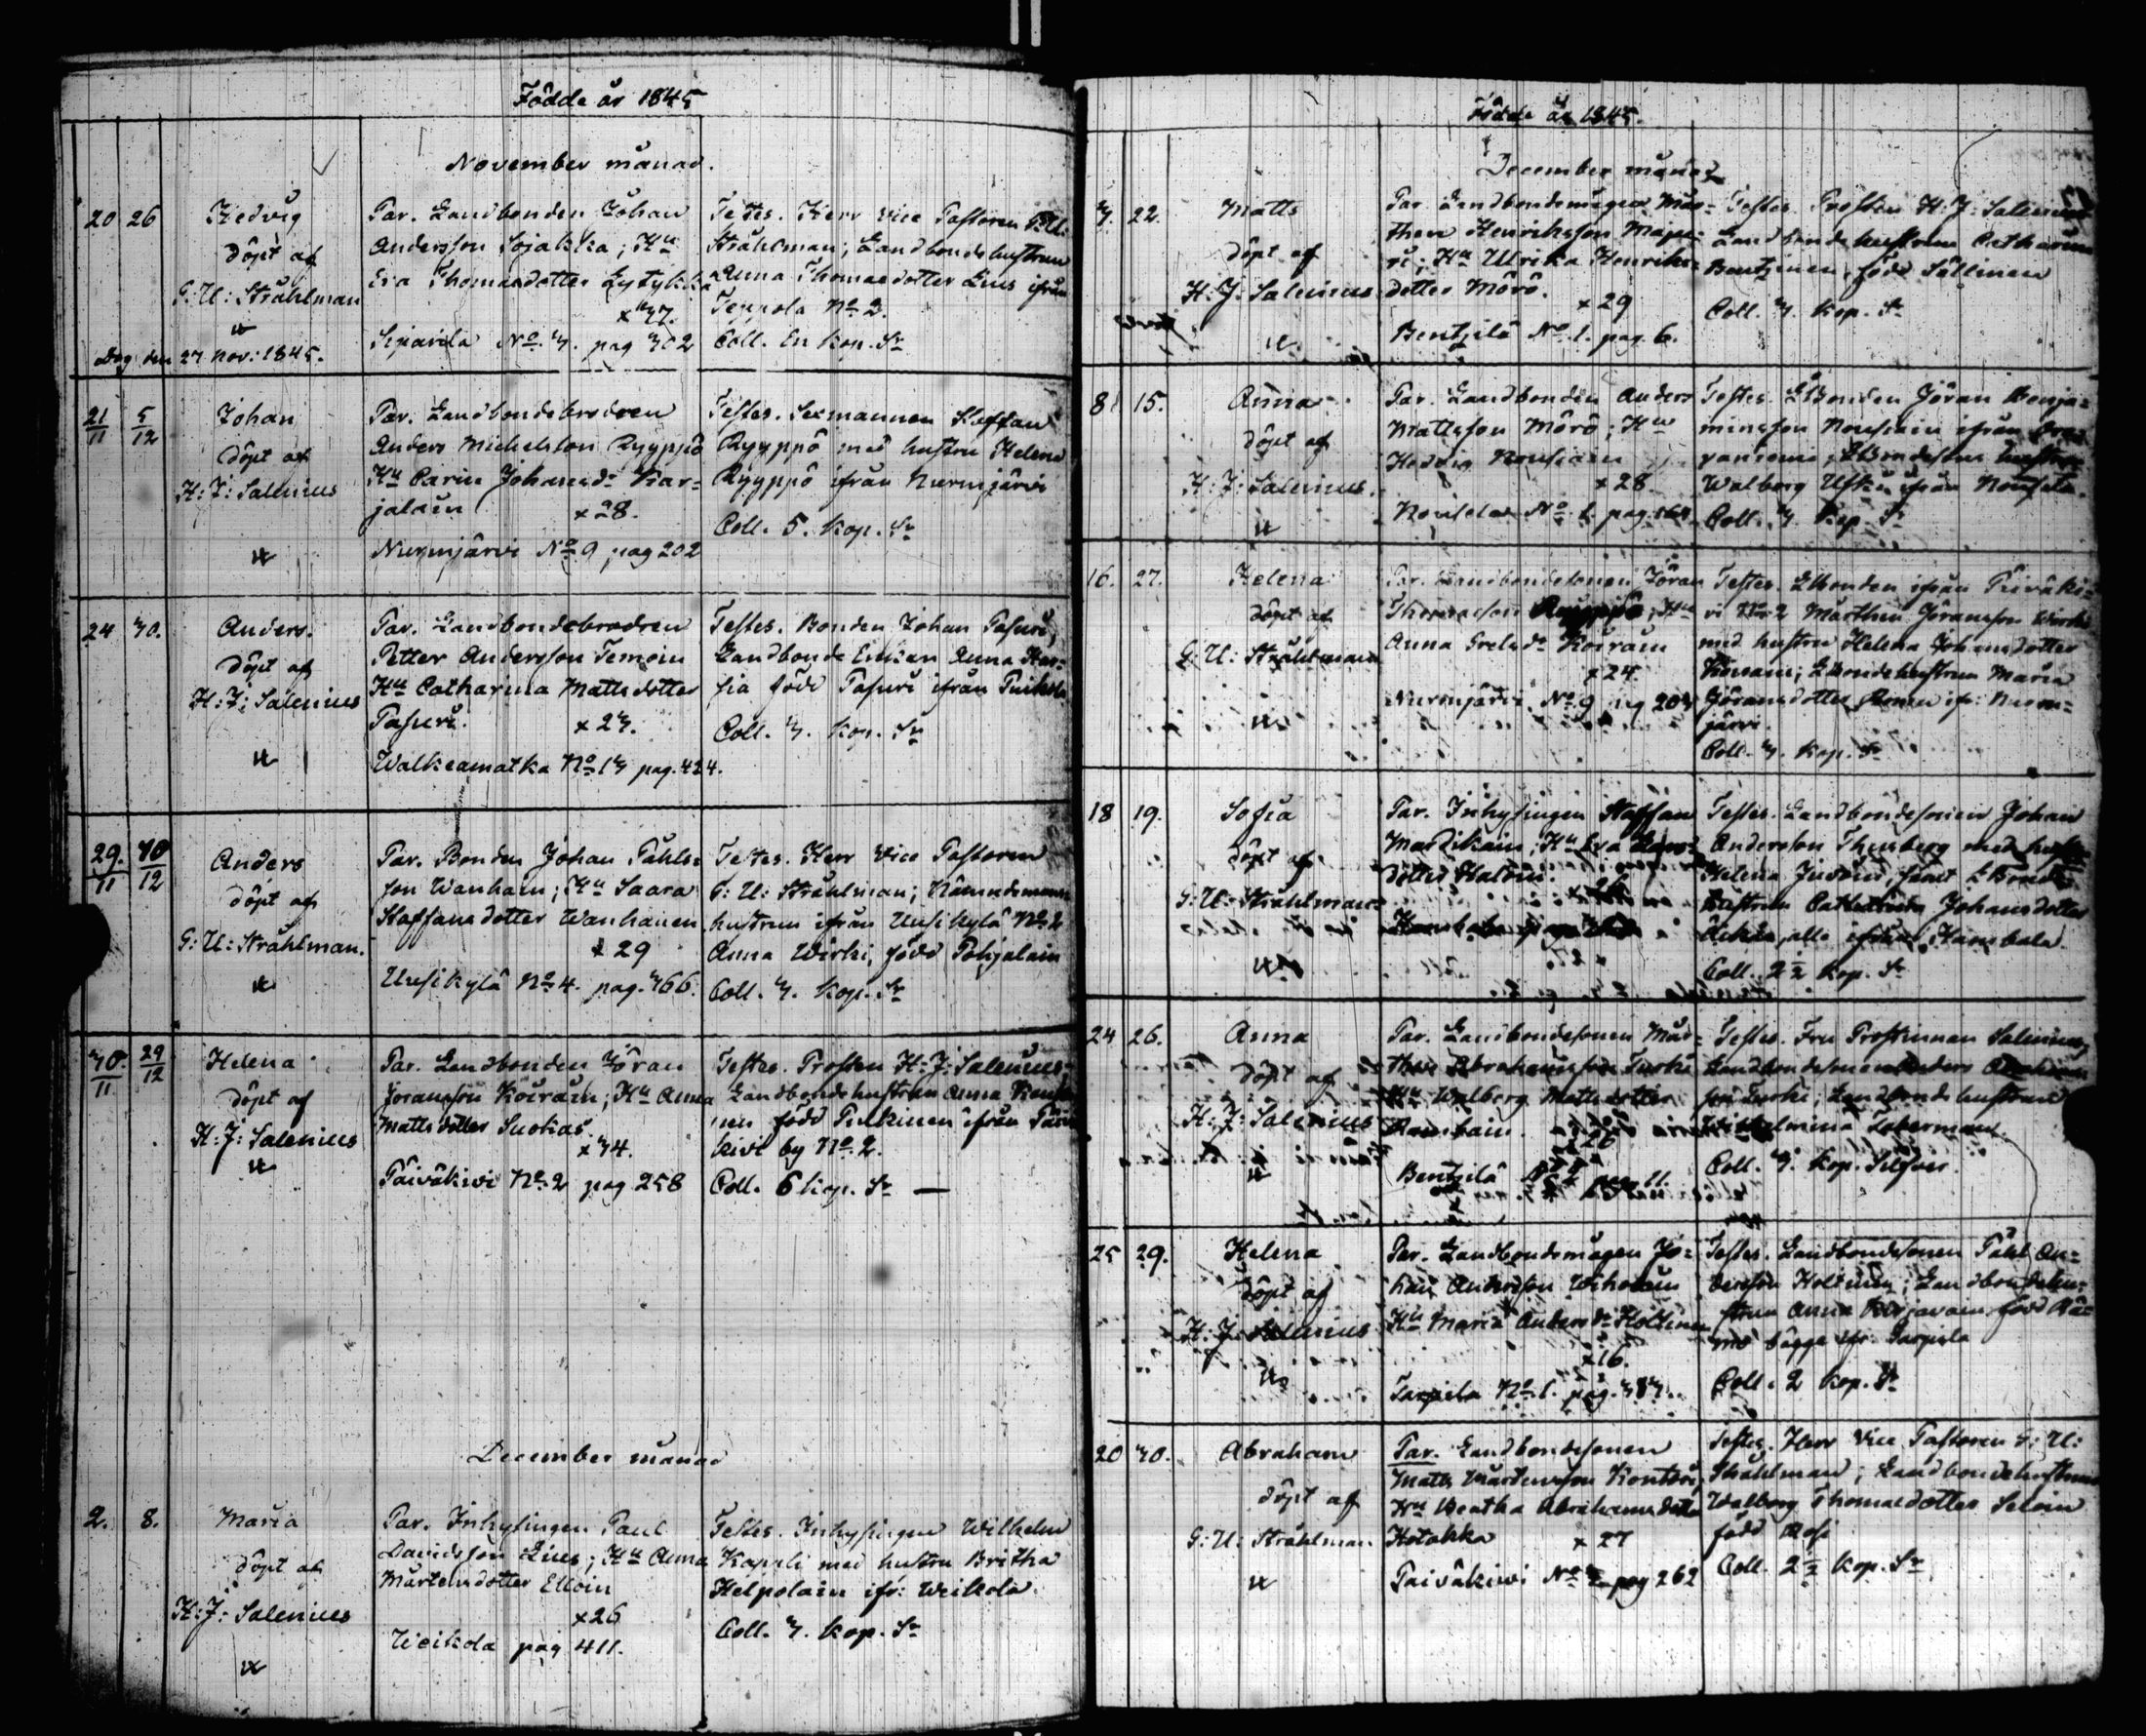 Födde år 1845
November månad.
20 26
Hedvig
döpt af
G: U: Stråhlman
Dog den 27 Nov: 1845.
Par. Landbonden Johan
Andersson Sojakka; Hu
Eva Thomasdotter Lytykkä
x 37.
Sipavila No 3. pag 302
Testes. Herr Vice Pastoren G: U:
Stråhlman; Landbondehustrun
Anna Thomasdotter Lius ifrån
Teppola No 2.
Coll. En kop. Sr
21/11 5/12
Johan
döpt af
H: J: Salenius
Par. Landbondebrodren
Anders Michelsson Ryyppö
Hu Carin Johansdr Kar-
jalain
x 28.
Nurmjärvi No 9 pag 202
Testes. Sexmannen Staffan
Ryyppö med hustru Helena
Ryyppö ifrån Nurmjärvi
Coll. 5. Kop. Sr
24 30.
Anders.
döpt af
H: J: Salenius
Par. Landbondebrodren
Petter Andersson Temoin
Hu Catharina Mattsdotter
Pasuri.
x 23.
Walkeamatka No 13 pag. 424.
Testes. Bonden Johan Pasuri,
Landbonde Enkan Anna Har-
sia född Pasuri ifrån Puikola
Coll. 3. Kop. Sr
29./11 30/12
Anders
döpt af
G: U: Stråhlman.
Par. Bonden Johan Påhls-
son Wanhain; Hu Saara
Staffansdotter Wanhanen
x 29
Uusikylä No 4. pag. 366.
Testes. Herr Vice Pastoren
G: U: Stråhlman; Nämndemans
hustrun ifrån Uusikylä No 2
Anna Wirki, född Pohjalain
Coll. 3. Kop. Sr
30./11 29/12
Helena
döpt af
H: J: Salenius
Par. Landbonden Jöran
Jöransson Koirain; Hu Anna
Mattsdotter Suokas
x 34.
Päiväkivi No 2 pag 258
Testes. Prosten H: J: Salenius
Landbondehustrun Anna
född Pulkinen ifrån Päi-
kivi by No 2.
Coll. 6 Kop. Sr —
December månad
2. 8.
Maria
döpt af
H: J: Salenius
Par. Inhysingen Paul
Davidsson Lius; Hu Anna
Mårtensdotter Elloin
x 26
Weikola pag 411.
Testes. Inhysingen Wilhelm
Kappli med hustru Britha
Helpolain ifr: Weikola.
Coll. 3. Kop. Sr
Födde år 1845.
December månad
3. 22.
Matts
döpt af
H: J: Salenius
Par. Landbondemågen Mår-
then Henriksson
Hu Ulrika Henriks-
dotter Mörö.
x 29
Bentzilä No 1. pag. 6.
Testes. Prosten H: J: Salenius
Landbondehustrun Catharina
Bentzinen, född Sällinen
Coll. 3. Kop. Sr
8 15.
Anna
döpt af
H: J: Salenius.
Par. Landbonden Anders
Mattsson Mörö; Hu
Hedvig Nousiain
x 28.
Nousiala No 1 pag.
Testes. LBonden Jöran Benja-
minsson Nousiain ifrån
Walborg Uski ifrån Nousiala.
Coll. 3. Kop. Sr
16. 27.
Helena
döpt af
G: U: Stråhlman
Par. Landbondesonen Jöran
Thomasson Ryyppö; Hu
Anna Gretsdr Koirain
x 24.
Nurmjärvi No 9 pag 203
Testes. LBonden ifrån Päiväki-
vi No 2 Mårthen Jöransson
med hustru Helena Johansdotter
LBondehustrun Maria
Jöransdotter ifr: Nurm-
järvi.
Coll. 3. Kop. Sr
18 19.
Sofia
döpt af
G: U: Stråhlman
Par. Inhysingen Staffan
Mardikain; Hu Eva
dotter Haloin.
x 26
Testes. Landbondesonen Johan
Andersson Thusberg med
Helena samt LBonde-
hustrun Catharina Johansdotter
alla ifrån Hambala.
Coll. 2 1/2 Kop. Sr
24 26.
Anna
döpt af
H: J: Salenius
Par. Landbondesonen Mår-
then Abrahamsson Turki
Hu Walborg Mattsdotter
x 26
Bentzilä pag 11.
Testes. Fru Prostinnan Salenius,
Landbondesonen Anders
son Turki, Landbondehustrun
Wilhelmina Taberman.
Coll. 3. Kop. Silfver.
25 29.
Helena
döpt af
H. J. Salenius
Par. Landbondemågen Jo-
han Andersson Wihavain
Hu Maria Andersdr Holtinen
x 16.
Tarpila No 1. pag. 383.
Testes. Landbondesonen Påhl An-
dersson Holtinen; Landbondehu-
strun Anna född Rä-
mö bägge ifr: Tarpila
Coll. 2 Kop. Sr
20 30.
Abraham
döpt af
G: U: Stråhlman
Par. Landbondesonen
Matts Mårtensson Kontori,
Hu Beatha Abrahamsdotter
Hotakka
x 27
Päiväkivi No pag 262
Testes. Herr Vice Pastoren G: U:
Stråhlman; Landbondehustrun
Walborg Thomasdotter Seloin
född Rosi
Coll. 2 1/2 Kop. Sr